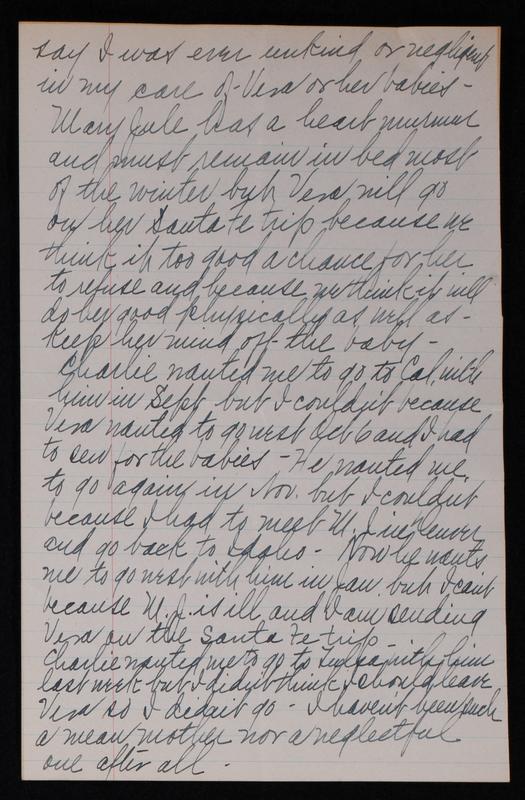 say I was ever unkind or negligent
in my care of Vera or her babies -
Mary Jule has a heart murmur
and must remain in bed most
of the winter but Vera will go
on her Santa Fe trip because we
think it too good a chance for her
to refuse and because we think it will
do her good physically as well as -
keep her mind off the baby -
Charlie wanted me to go to Cal. with
him in Sept. but I couldn't because
Vera wanted to go west Oct 6 and I had
to sew for the babies - He wanted me
to go again in Nov. but I couldn't
because I had to meet M. J. in Denver
and go back to Idaho - Now he wants
me to go west with him in Jan but I can't
because M. J. is ill and I am sending
Vera on the Santa Fe trip
Charlie wanted me to go to Tulsa with him
last week but I didn't think I should leave
Vera so I didn't go - I haven't been such
a mean mother nor a neglectful
one after all -